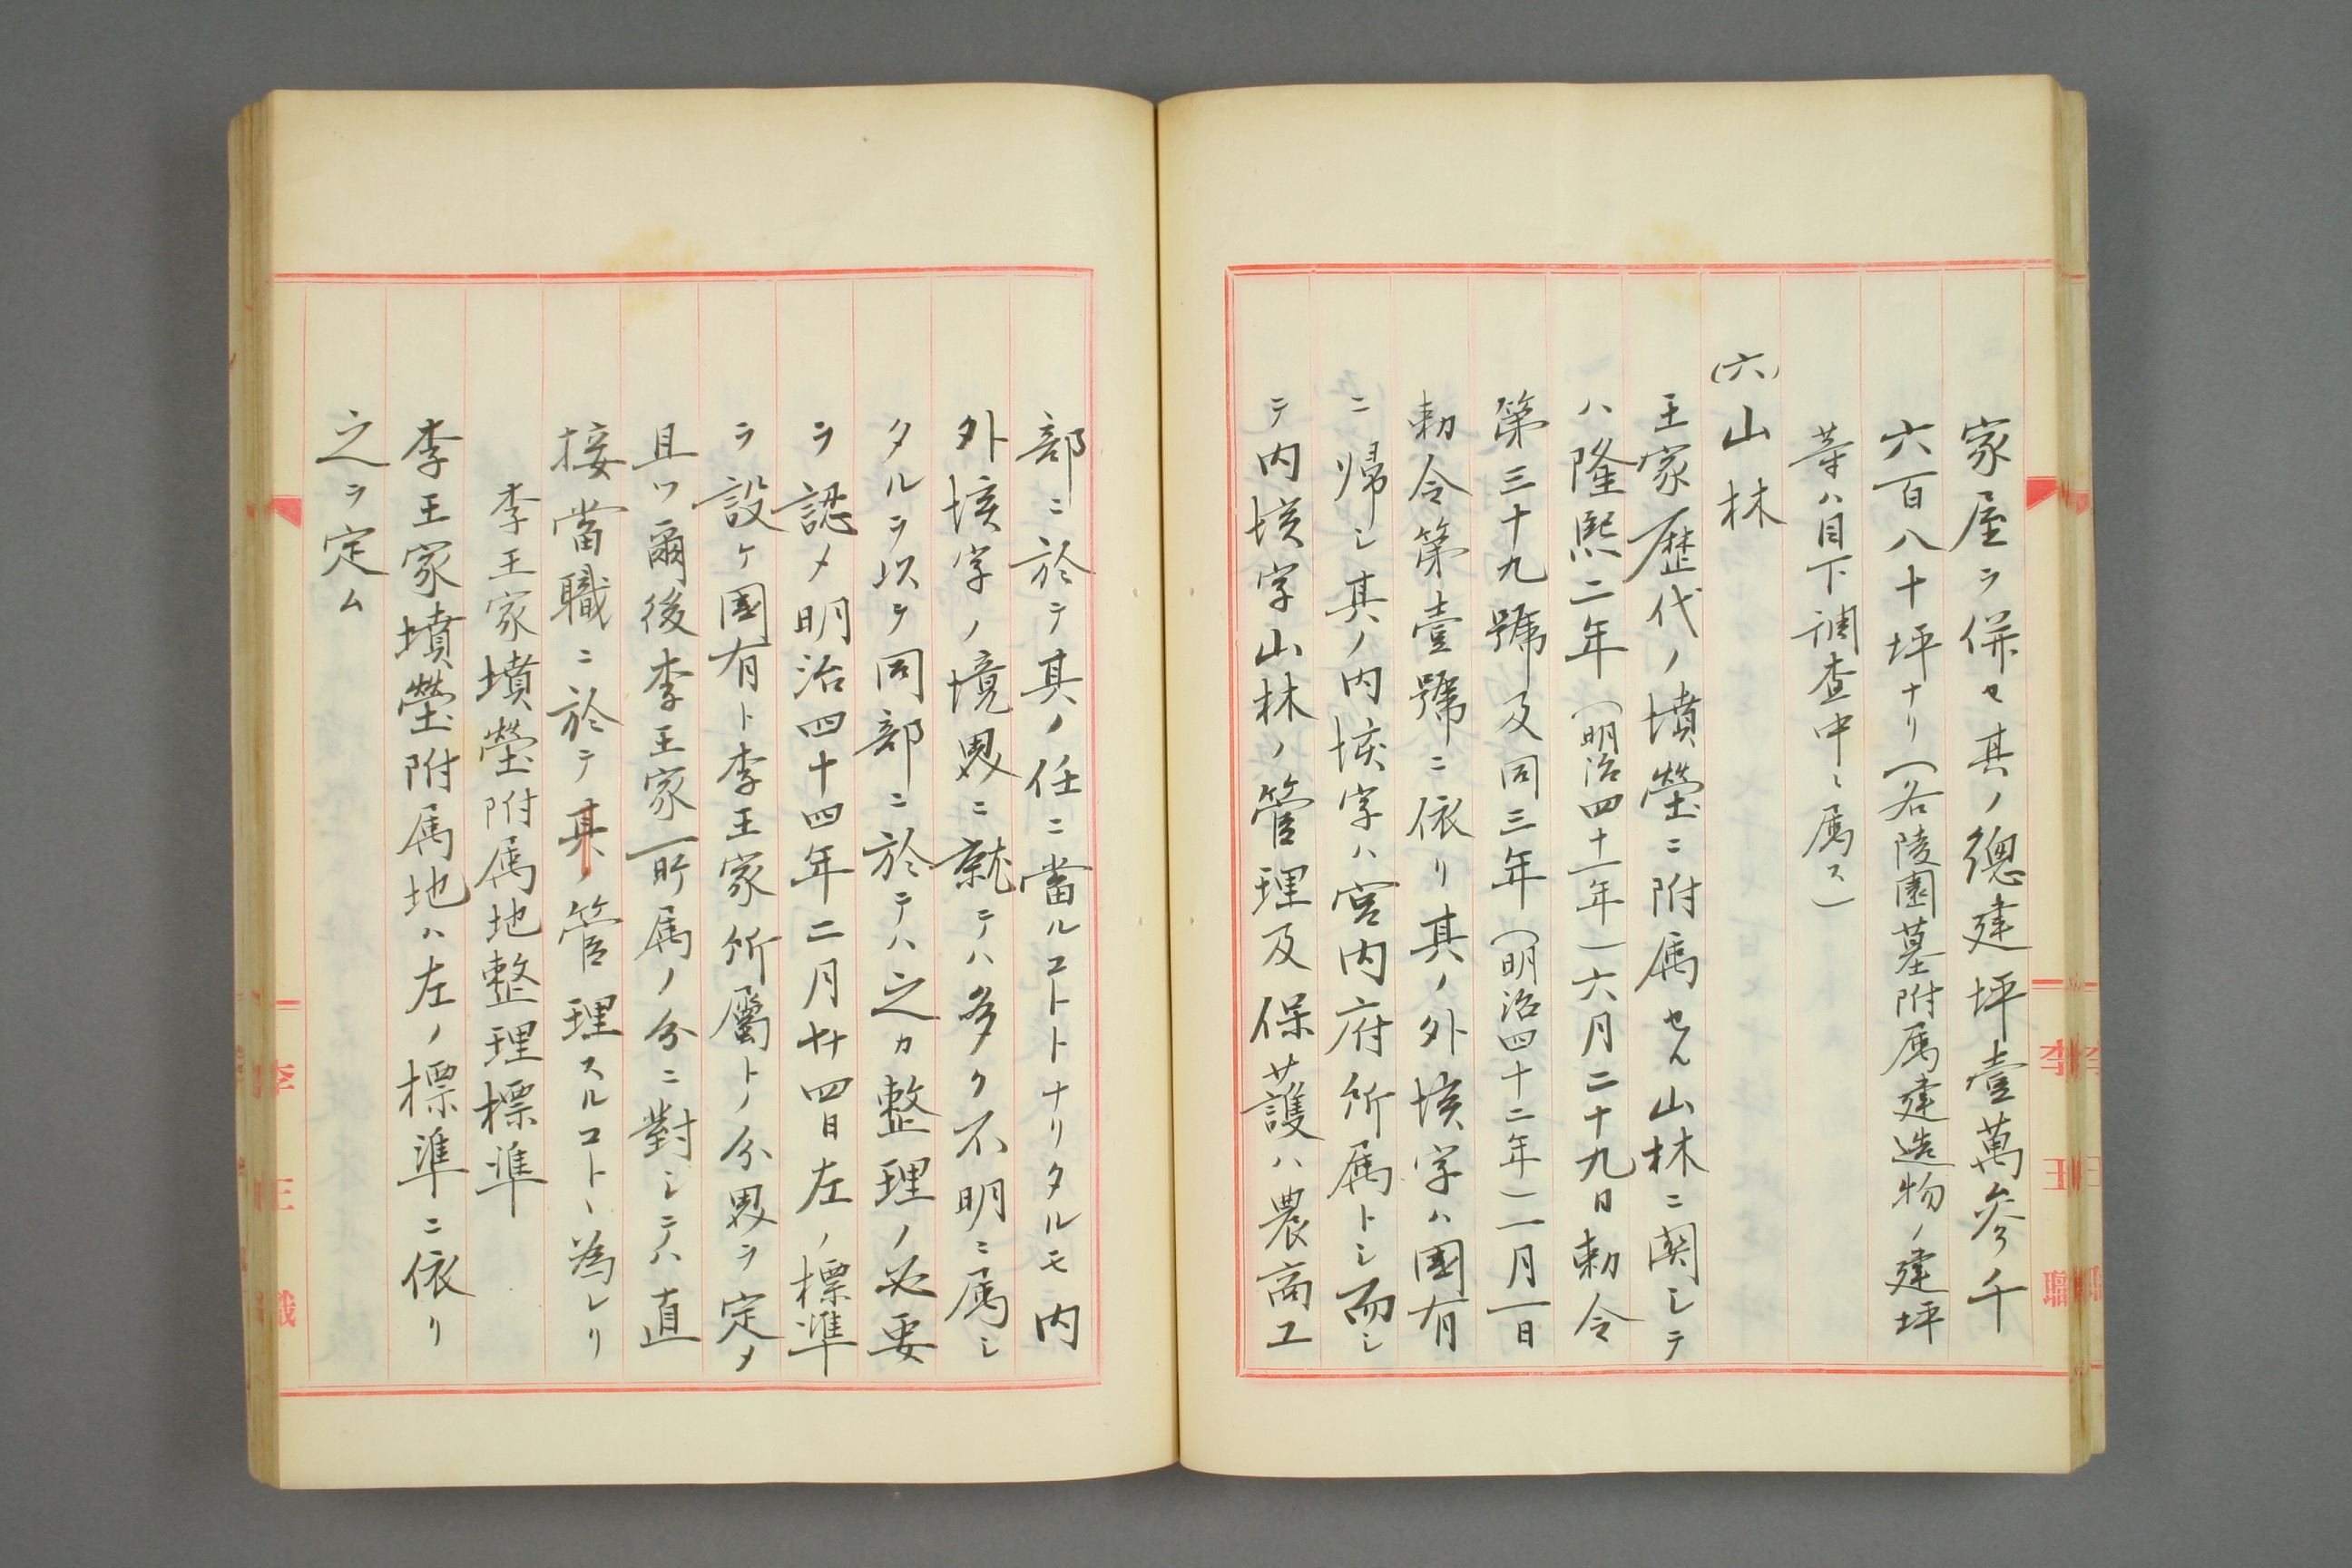 家屋ヲ併セ其ノ總建坪壹萬參千
六百八十坪ナリ(各陵園墓附属建造物ノ建坪
等ハ目下調査中ニ属ス)
(六)山林
王家歴代ノ墳塋ニ附属セル山林ニ関シテ
ハ隆熙二年(明治四十一年)六月二十九日勅令
第三十九號及同三年(明治四十二年)一月一日
勅令第壹號ニ依リ其ノ外垓字ハ國有
ニ帰シ其ノ内垓字ハ宮内府所属トシ而シ
テ内垓字山林ノ管理及保護ハ農商工
部ニ於テ其ノ任ニ當ルコトトナリタルモ内
外垓字ノ境界ニ就テハ多ク不明ニ属シ
タルヲ以テ同部ニ於テハ之カ整理ノ必要
ヲ認メ明治四十四年二月廿四日左ノ標準
ヲ設ケ國有ト李王家所屬トノ分界ヲ定メ
且ツ爾後李王家所属ノ分ニ對シテハ直
接當職ニ於テ其ノ管理スルコトヽ為レリ
李王家墳塋附属地整理標準
李王家墳塋附属地ハ左ノ標準ニ依リ
之ヲ定ム
李王職
李王職